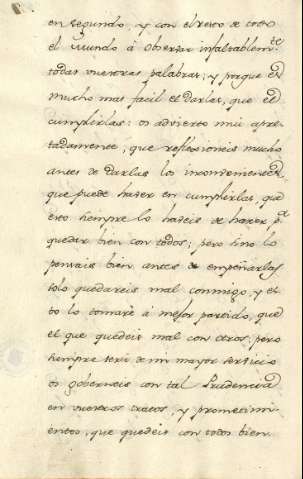 en segundo, y con el resto de todo
el mundo à observar infaltablem.te
todas vuestras palabras; y porque es
mucho mas facil el darlas, que el
cumplirlas: os advierto mui apre-
tadamente, que reflexioneis mucho
antes de darlas los inconvenientes,
que puede haver en cumplirlas, que
esto siempre lo haveis de hazer p.a
quedar bien con todos; pero sino lo
pensais bien antes de empeñarlas
solo quedareis mal conmigo, y es-
to lo tomaré à mejor partido, que
el que quedeis mal con otros; pero
siempre será de mi mayor servicio
os goberneis con tal Prudencia
en vuestros tratos, y prometimi-
entos, que quedeis con todos bien.